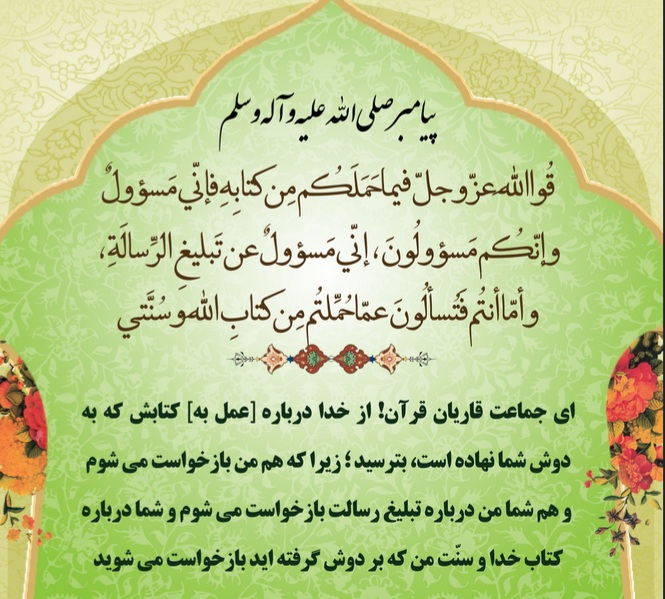 پیامبر صلی الله علیه و آله و سلم
قُوا الله عزّ و جلّ فيما حَمَلَكُم مِن كتابِهِ فإنّي مَسؤولٌ
وإنّكُم مَسؤولُونَ ، إنّي مَسؤولٌ عن تَبليغِ الرِّسالَةِ،
و أمّا أنتُم فَتُسألُونَ عمّا حُمِّلتُم مِن كتابِ الله و سُنَّتي
ای جماعت قاریان قرآن! از خدا درباره [عمل به] کتابش که به
دوش شما نهاده است، بترسید ؛ زیرا که هم من بازخواست می شوم
و هم شما من درباره تبلیغ رسالت بازخواست می شوم و شما درباره
کتاب خدا و سنّت من که بر دوش گرفته اید بازخواست می شوید